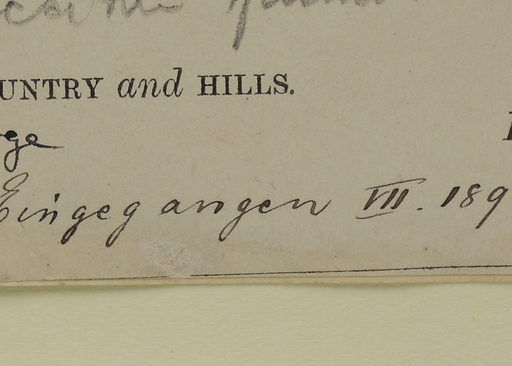 UNTRY and HILLS.
ge
Eingegangen VII. 189